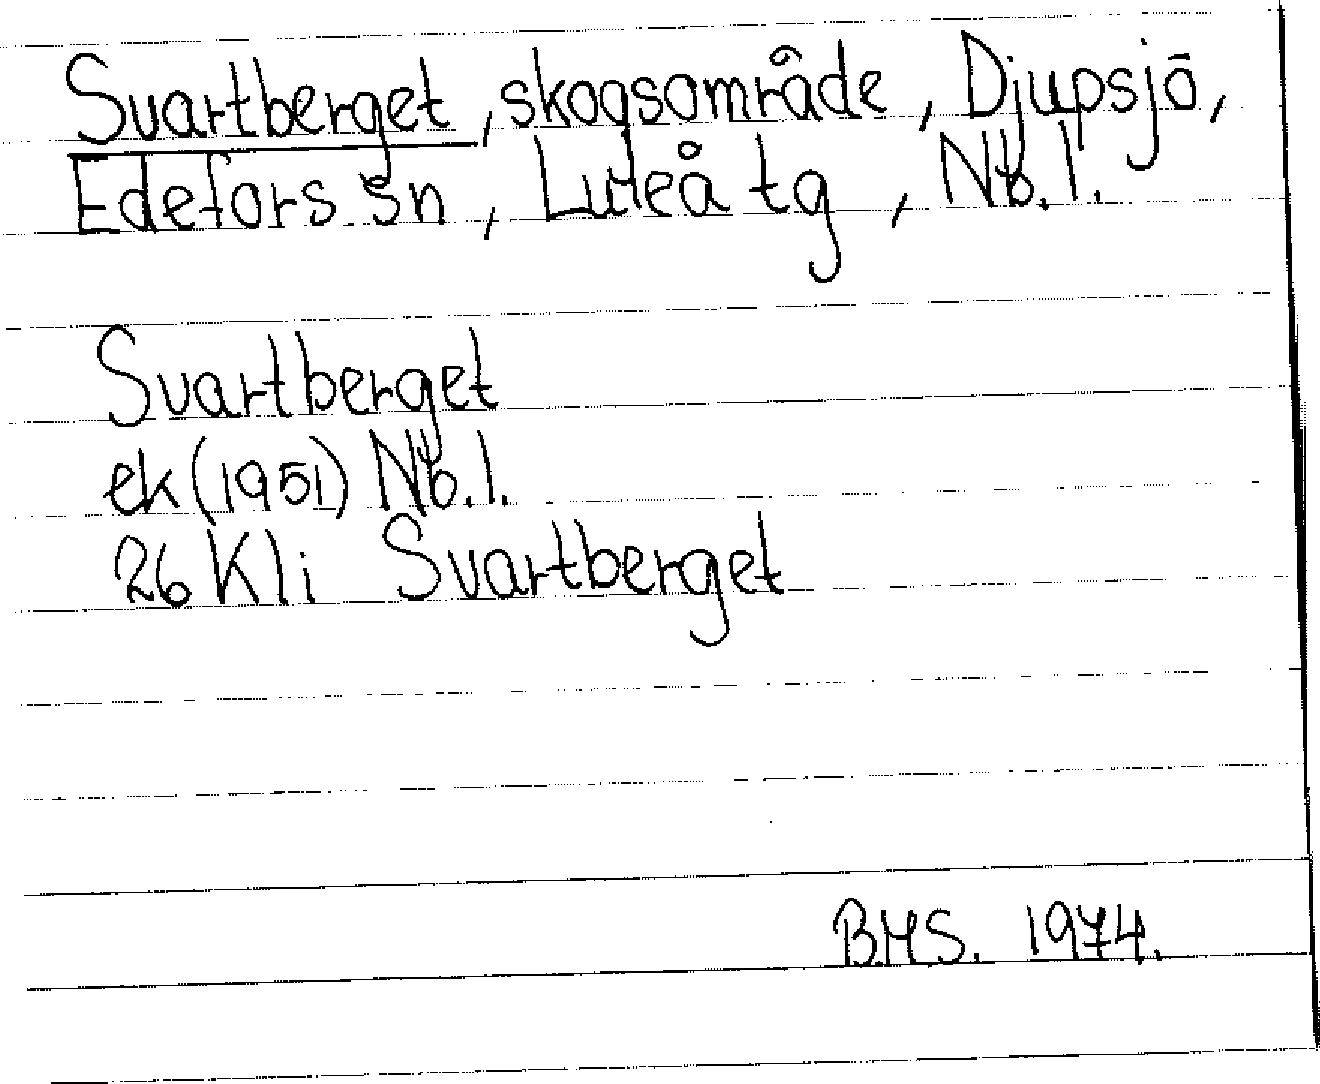 Svartberget, skogsområde, Djupsjö,
Edefors sn, Luleå tg, Nb. l.
Svartberget
ek (1951) Nb. l.
26 Kli Svartberget
B.M.S. 1974.